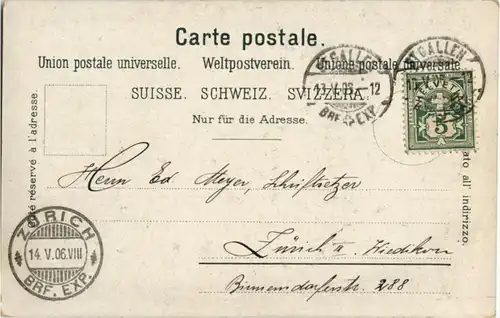 Carte postale.
Union postale universelle. Weltpostverein. Unione postale universale
SUISSE. SCHWEIZ. SVIZZERA.
Nur für die Adresse.
ST. GALLEN
13.V.06.-12
BRF. EXP.
ST. GALLEN
13.V.06.-12
HELVETIA
5
té réservé à l'adresse.
ato all' indirizzo.
Herrn Ed Meyer, Schriftsetzer
Zürich Wiedikon
Birmensdorferstr. 288
ZÜRICH
14.V.06.VIII
BRF. EXP.